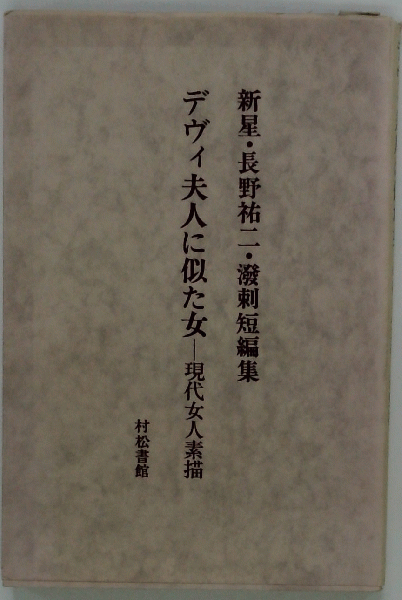 新星・長野祐二・潑剌短編集
デヴィ夫人に似た女―現代女人素描
村松書館